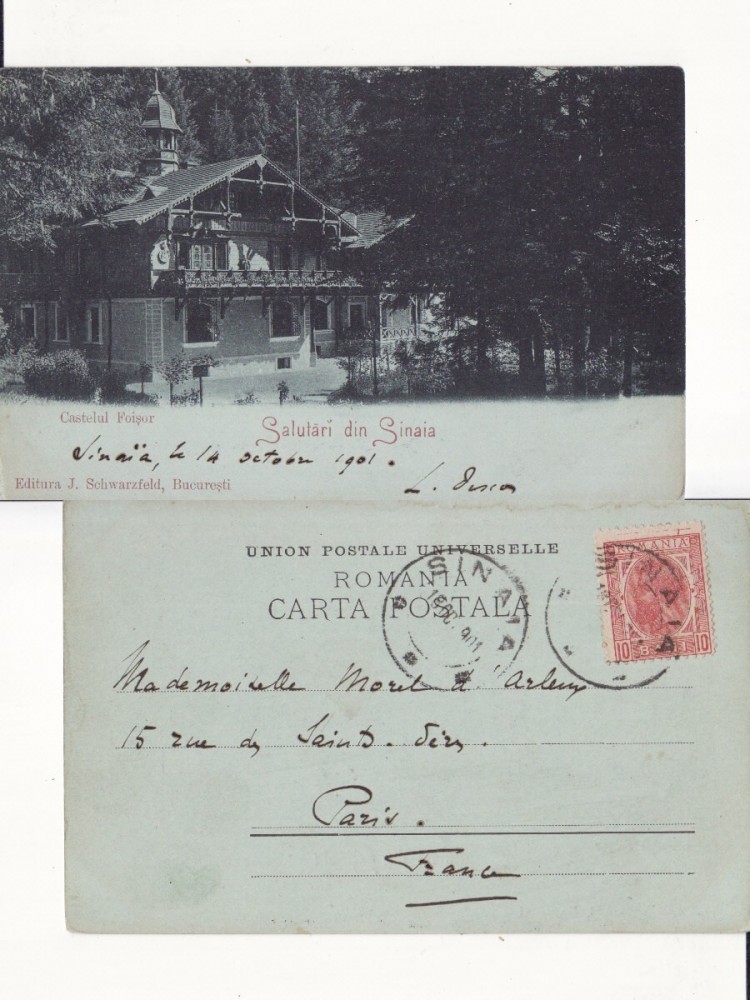 Castelul Foişor
Salutări din Sinaia
Sinaïa, le 14 octobre 1901.
Editura J. Schwarzfeld, Bucureşti
L.
UNION POSTALE UNIVERSELLE
ROMANIA
CARTA POSTALA
SINAIA
901
ROMANIA
10 BANI 10
NAIA
Mademoiselle Morel d'Arleux
15 rue des Saints-Pères.
Paris.
France